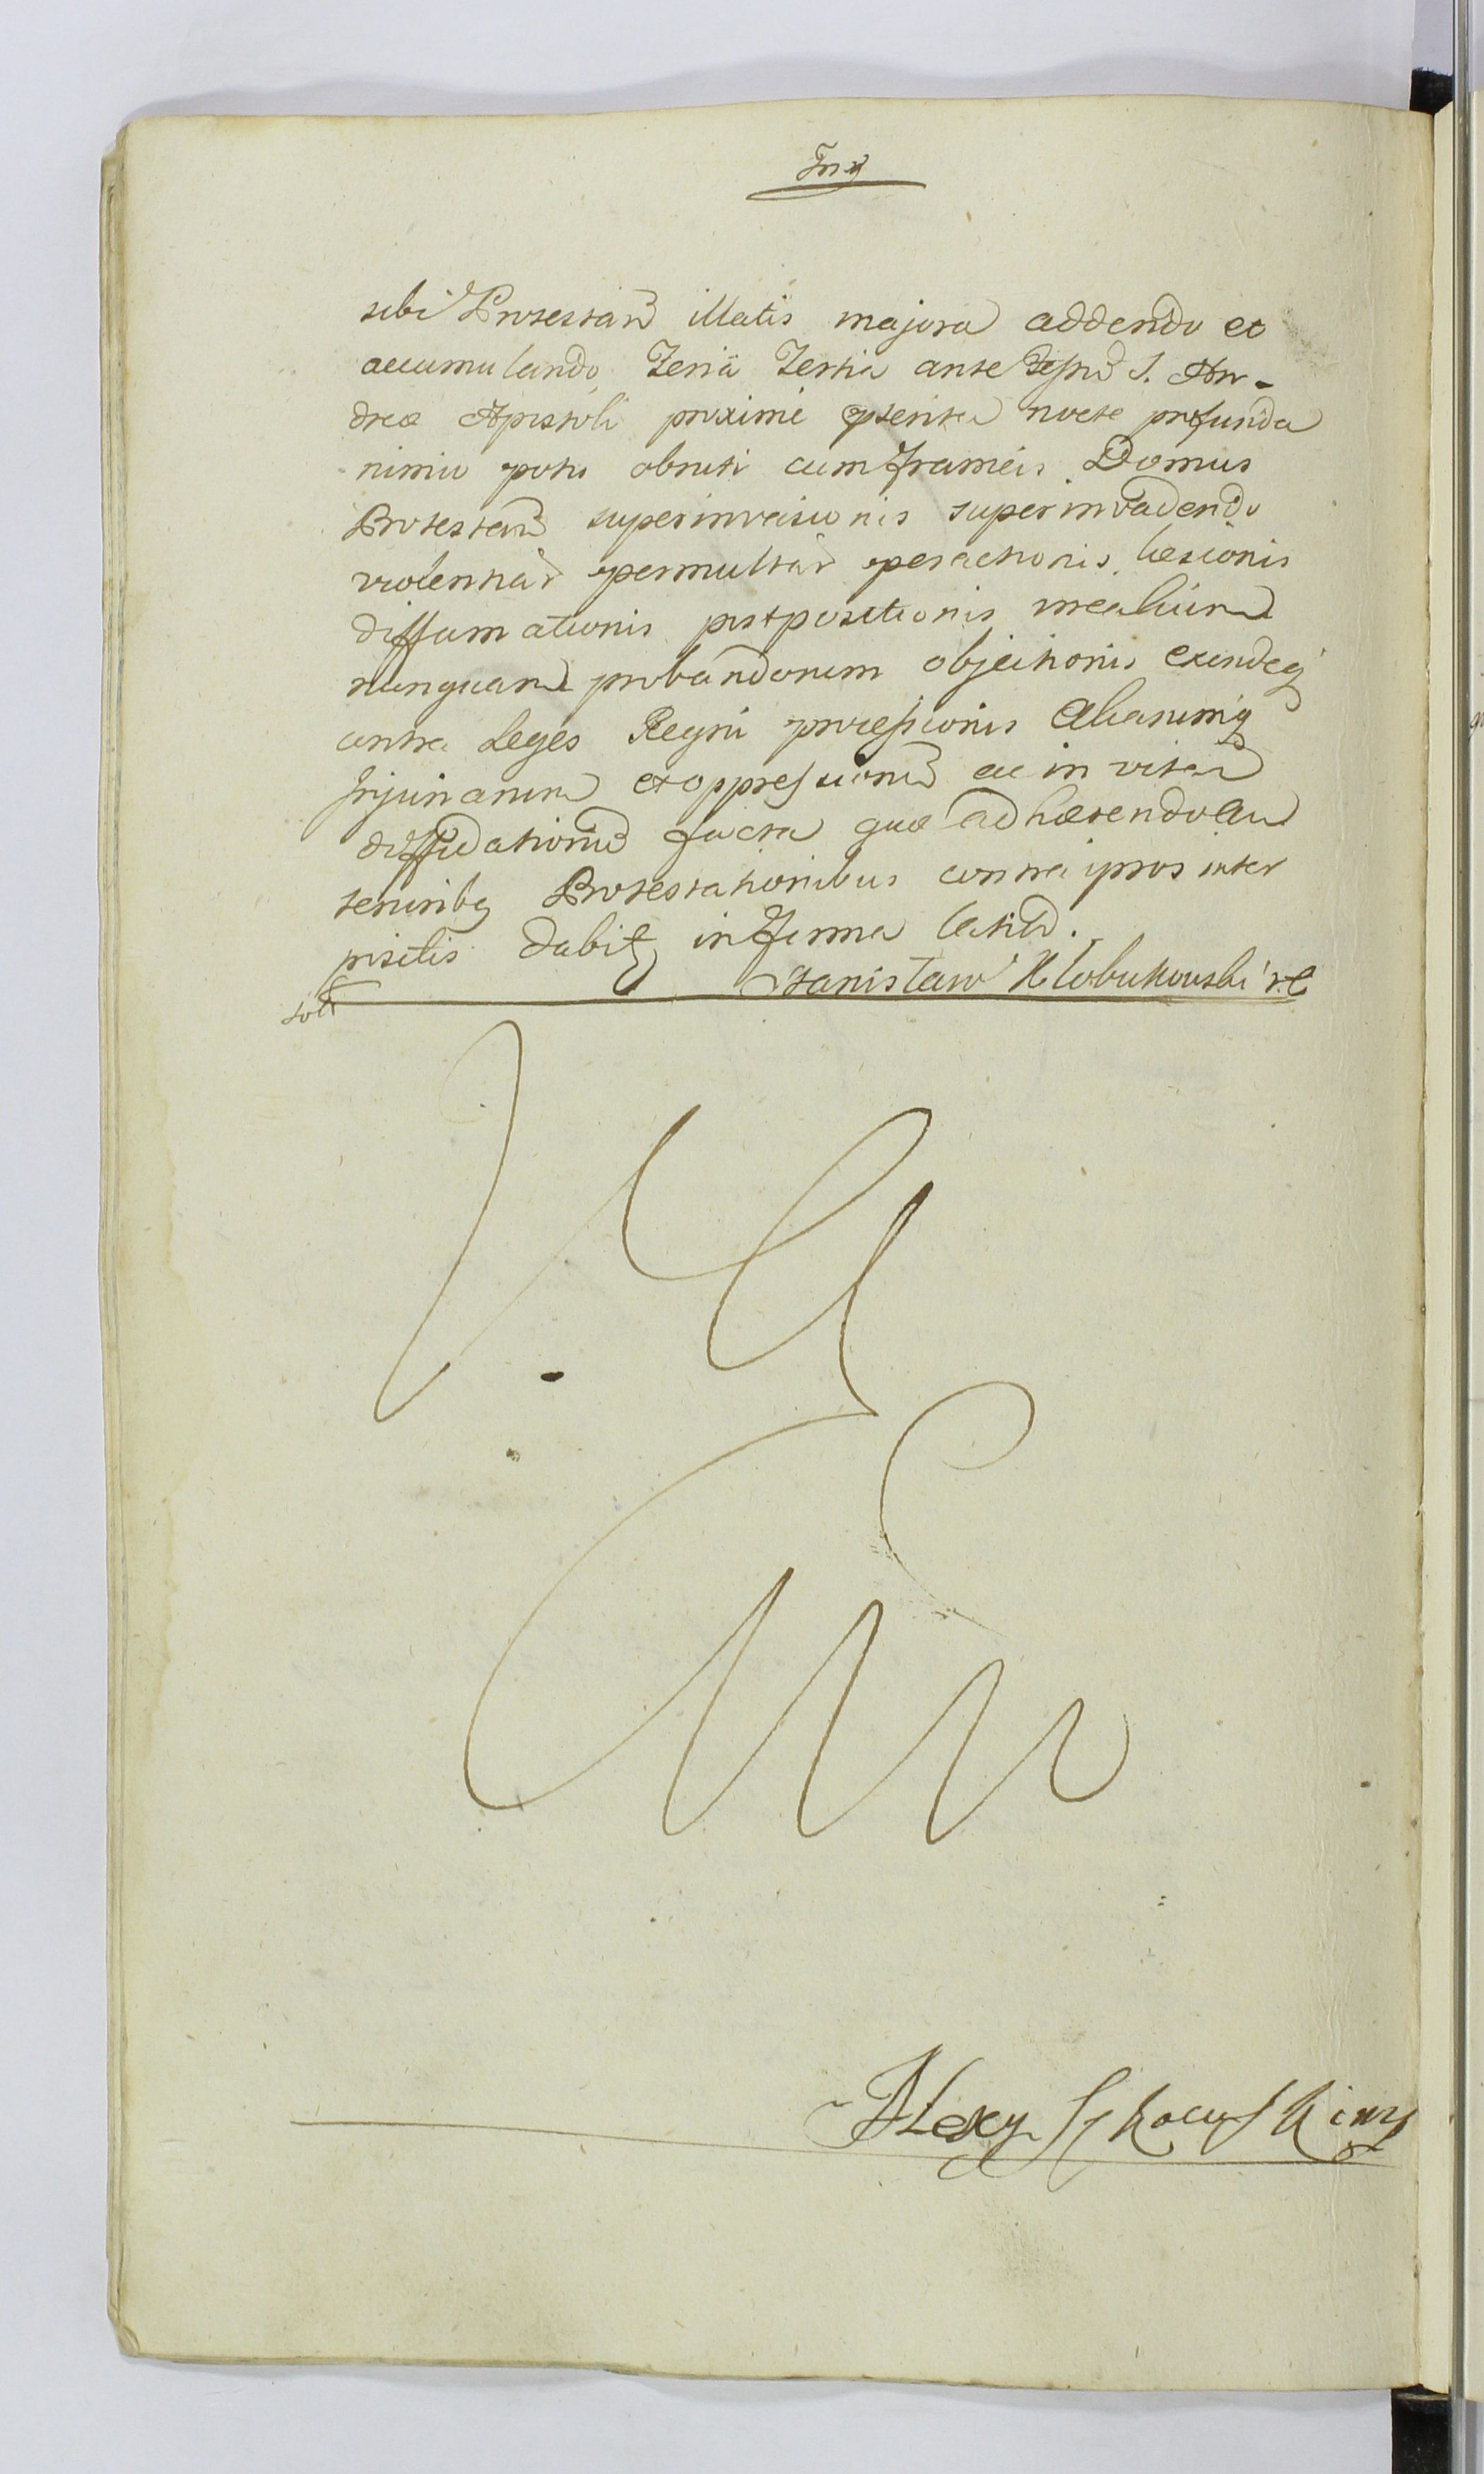 sibi Protestand illatis majora addendo et
accumulando Feria Tertia ante Festud S. An-
dreæ Apostoli proxime pterita nocte profunda
nimio potu obruti cum frameis Domus
Protestand superinvasionis superinvadendo
violentiar permultar peractionis læsionis
diffamationis postpositionis mealium
nunquam probandorum objectionis exindeq
contra Leges Regni processionis Aliarumq
Injuriarum et oppressionud ac in vitam
diffidationud facta quæ adhærendo an
terioribq Protestationibus contra ipsos inter
positis dabit in forma latid.
Stanisław Kłobukowski
solt
Alexy